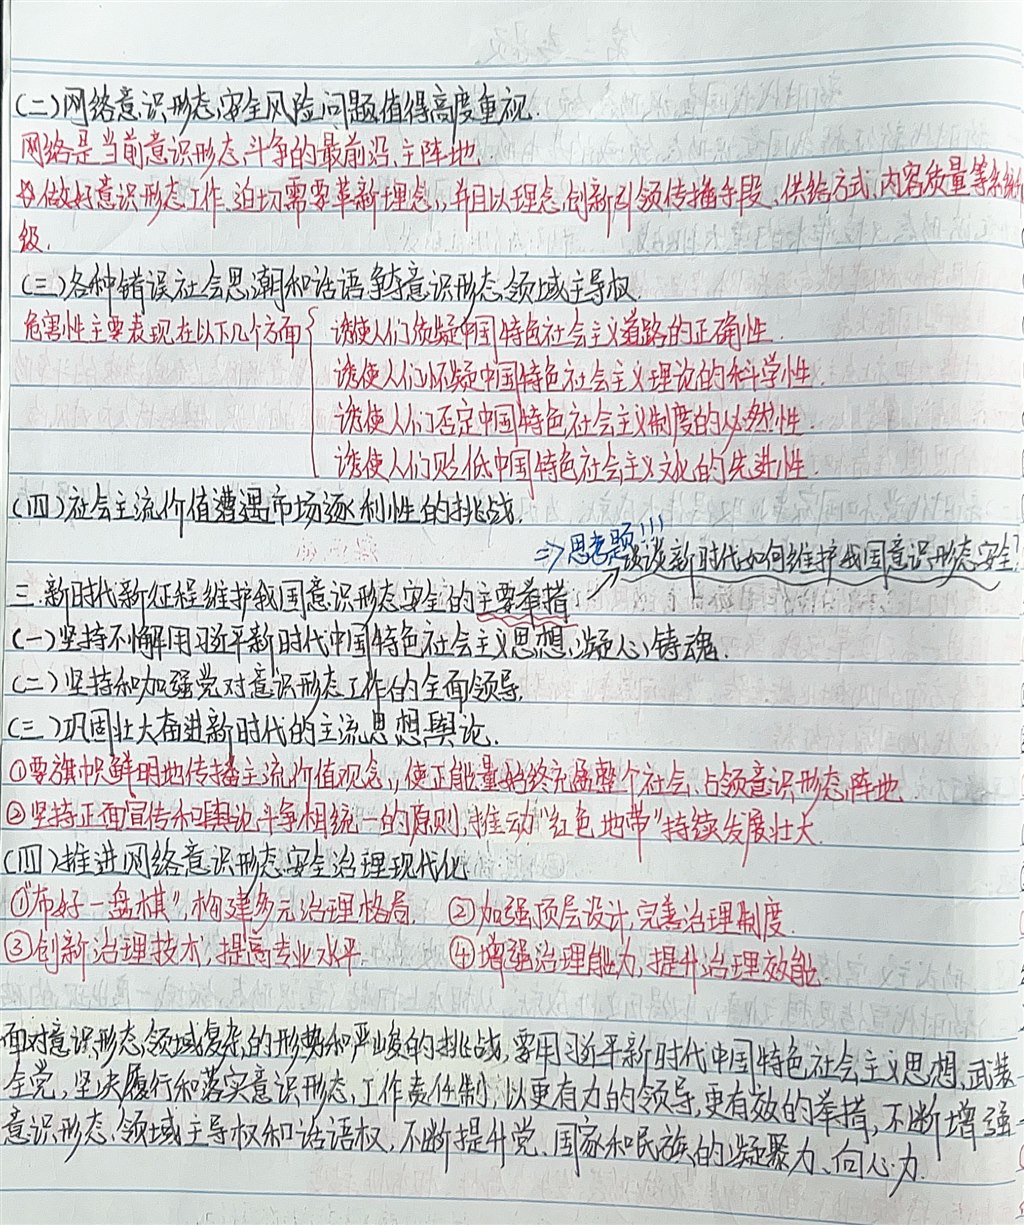 (二)网络意识形态安全风险问题值得高度重视.
网络是当前意识形态斗争的最前沿、主阵地.
做好意识形态工作,迫切需要革新理念,并且以理念创新引领传播手段、供给方式、内容质量等系统升
级.
(三)各种错误社会思潮和话语争夺意识形态领域主导权.
危害性主要表现在以下几个方面{ 诱使人们质疑中国特色社会主义道路的正确性.
诱使人们怀疑中国特色社会主义理论的科学性.
诱使人们否定中国特色社会主义制度的必然性.
诱使人们贬低中国特色社会主义文化的先进性.
(四)社会主流价值遭遇市场逐利性的挑战.
=>思考题!!!
谈谈新时代如何维护我国意识形态安全?
三.新时代新征程维护我国意识形态安全的主要举措
(一)坚持不懈用习近平新时代中国特色社会主义思想凝心铸魂.
(二)坚持和加强党对意识形态工作的全面领导.
(三)巩固壮大奋进新时代的主流思想舆论.
①要旗帜鲜明地传播主流价值观念,使正能量始终充盈整个社会、占领意识形态阵地.
②坚持正面宣传和舆论斗争相统一的原则,推动"红色地带"持续发展壮大.
(四)推进网络意识形态安全治理现代化
①"布好一盘棋",构建多元治理格局. ②加强顶层设计,完善治理制度.
③创新治理技术,提高专业水平. ④增强治理能力,提升治理效能.
面对意识形态领域复杂的形势和严峻的挑战,要用习近平新时代中国特色社会主义思想武装
全党,坚决履行和落实意识形态工作责任制,以更有力的领导,更有效的举措,不断增强
意识形态领域主导权和话语权,不断提升党、国家和民族的凝聚力、向心力.